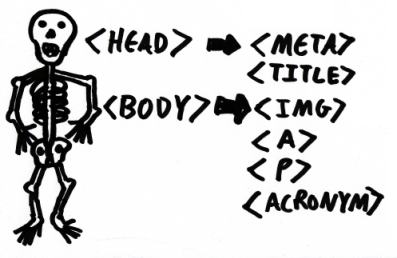 <HEAD> <META>
<TITLE>
<BODY> <IMG>
<A>
<P>
<ACRONYM>